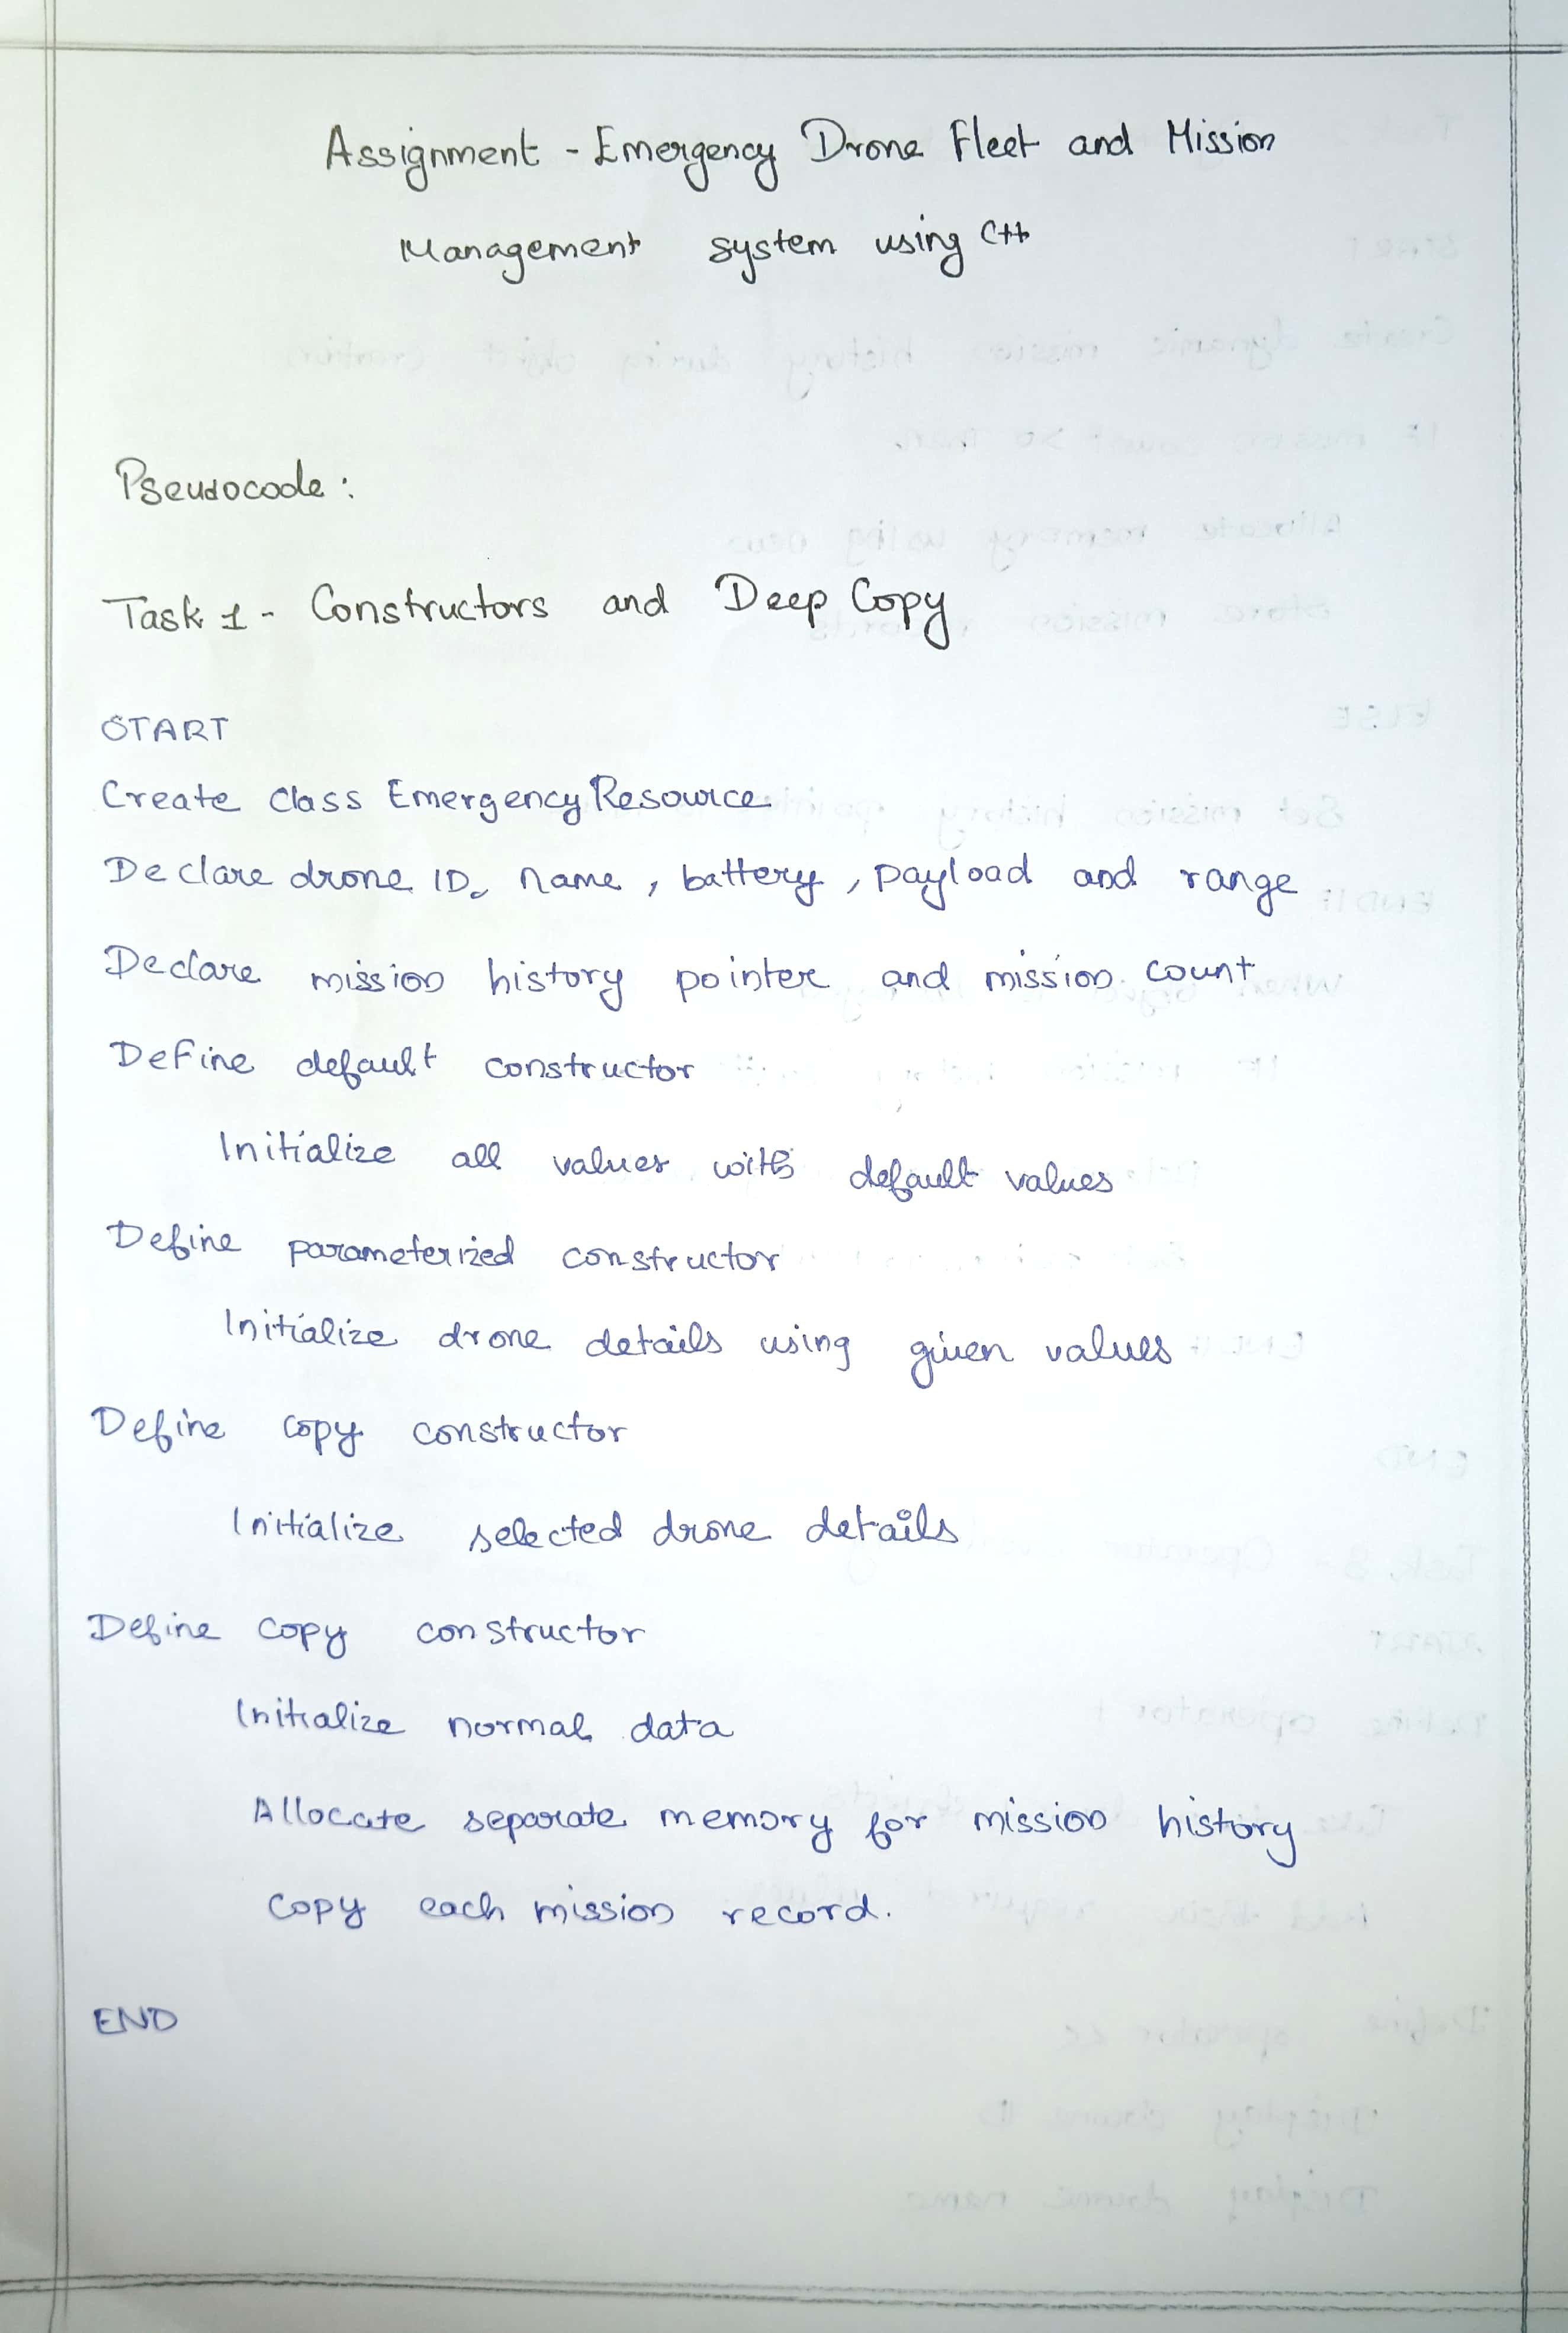 Assignment - Emergency Drone Fleet and Mission
Management system using C++
Pseudocode :
Task 1 - Constructors and Deep Copy
START
Create Class EmergencyResource
Declare drone ID, name, battery, payload and range
Declare mission history pointer and mission count
Define default constructor
Initialize all values with default values
Define parameterized constructor
Initialize drone details using given values
Define copy constructor
Initialize selected drone details
Define copy constructor
Initialize normal data
Allocate separate memory for mission history
Copy each mission record.
END